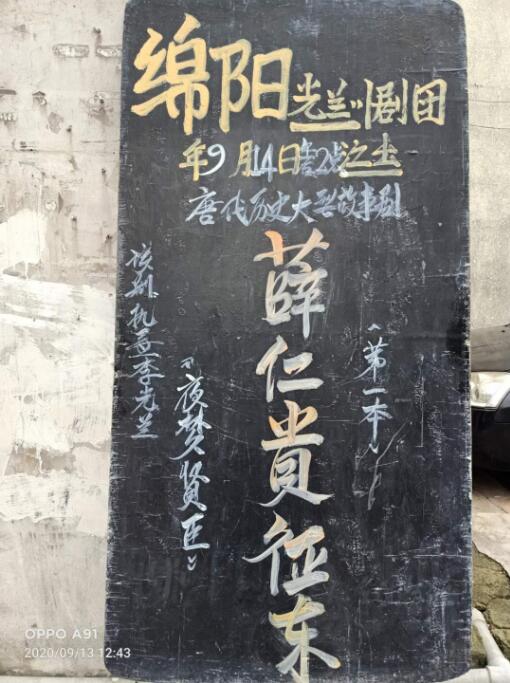 绵阳光兰川剧团
年9月14日吉2点注出
唐代历史大型故事剧
薛仁贵征东
《第一本》
《夜梦贤臣》
该剧执导李光兰
OPPO A91
2020/09/13 12:43